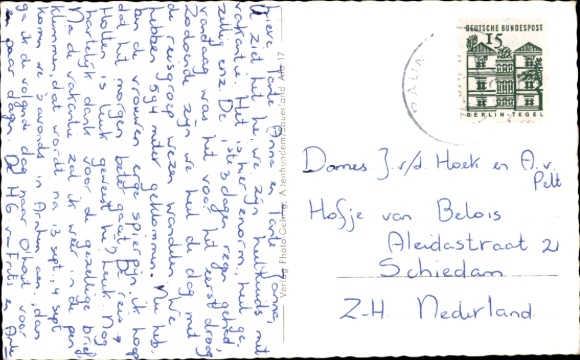 Lieve Tante Anna en Tante Janna,
U ziet het he, we zijn heelhuids met
vakantie. Het is hier enorm, heel ge
zellig enz. De 1ste 3 dagen regen gehad
vandaag was het voor het eerst droog,
zodoende zijn we heel de dag met
de reisgroep wezen wandelen. We
hebben 594 meter geklommen. Nu heb
ben de vrouwen erge spierpijn, ik hoop
dat het morgen beter gaat. De reis v
Hollen is leuk geweest hè? Leuk. Nog
hartelijk dank voor de gezellige brief
Na de vakantie zal ik weer in de pen
klimmen, dat wordt na 13 sept., 4 sept
komen we 's avonds in Arnhem aan, dan
ga ik de volgende dag naar O'had voor
een paar dagen. De HG v Frits en Ank
Verlag Photo Altenhundem/Sauerland Am 17
DEUTSCHE BUNDESPOST
15
BERLIN-TEGEL
Dames J. v/d Hoek en A. v.
Pelt
Hofje van Belois
Aleidastraat 21
Schiedam
Z-H. Nederland